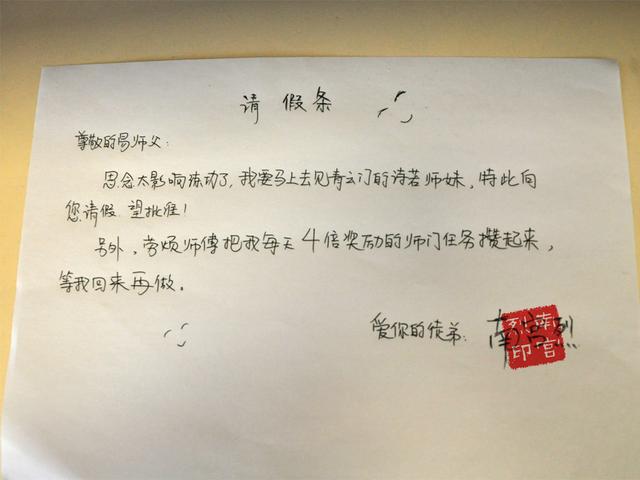 请假条
尊敬的易师父:
思念太影响练功了,我要马上去见青云门的诗若师妹,特此向
您请假 望批准!
另外,劳烦师傅把我每天4倍奖励的师门任务攒起来,
等我回来再做。
爱你的徒弟:南宫烈
南宫烈印